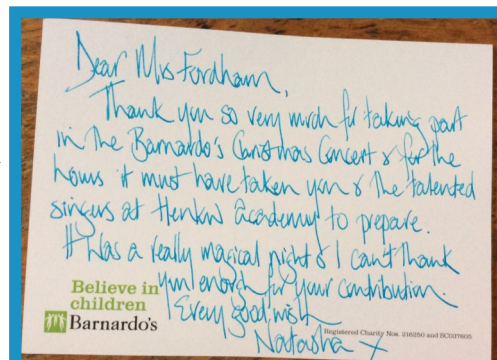 Dear Mrs Fordham,
Thank you so very much for taking part
in the Barnardo's Christmas Concert & for the
hours it must have taken you & the talented
singers at Academy to prepare.
It was a really magical night & I can't thank
you enough for your contribution.
Every good wish
Natasha x
Believe in
children
Barnardo's
Registered Charity Nos. 216250 and SC037605